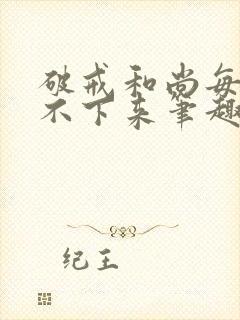 破戒和尚每
不下来笔趣
纪王